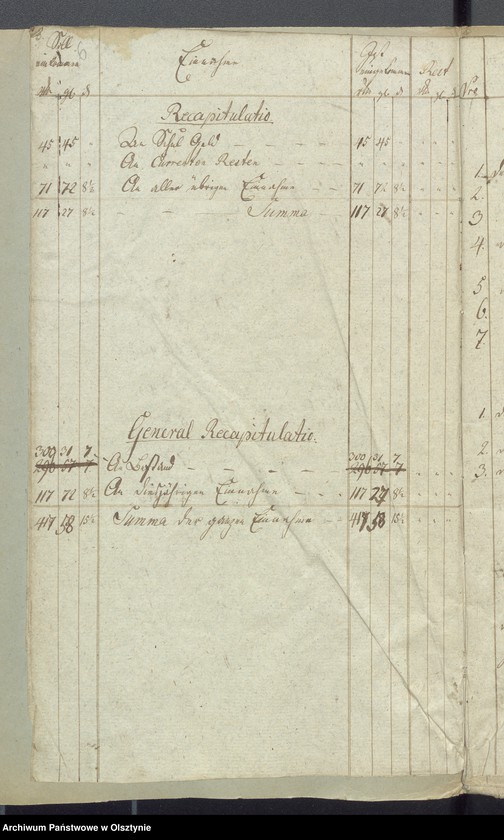 Soll
einkommen Einnahme Ist
eingekommen Rest
rtl. gl. d. rtl. gl. d. rtl. gl. d.
Recapitulatio
45 45 An Schul Geld 45 45
An Currenten Resten
71 72 8½ An aller übrigen Einnahme 71 72 8½
117 27 8½ Summa 117 27 8½
General Recapitulatio.
300 31 7 300 31 7
296 57 7 An Bestand 296 57 7
117 72 8½ An diesjährigen Einnahme 117 27 8½
417 58 15½ Summa der ganzen Einnahme 417 58 15½
1.
2.
3
4.
5
6.
7.
1.
2.
3.
Archiwum Państwowe w Olsztynie